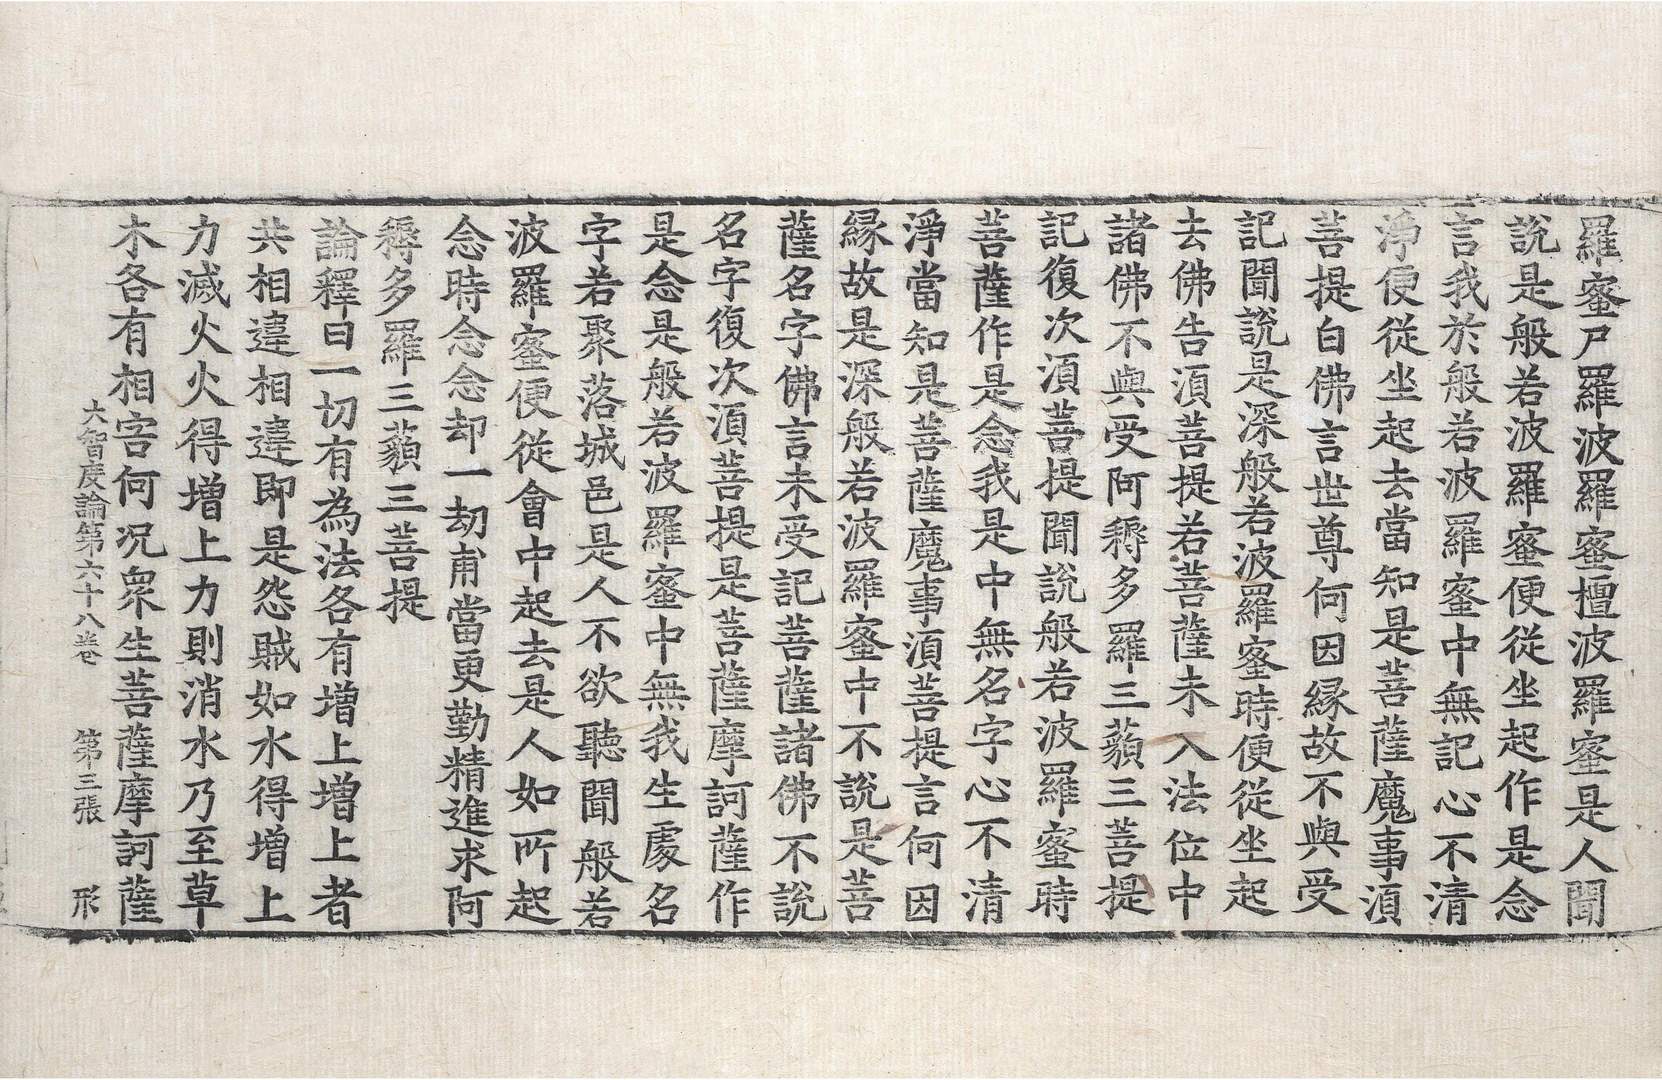 羅蜜尸羅波羅蜜檀波羅蜜是人聞
說是般若波羅蜜便從坐起作是念
言我於般若波羅蜜中無記心不清
淨便從坐起去當知是菩薩魔事須
菩提白佛言世尊何因緣故不與受
記聞說是深般若波羅蜜時便從坐起
去佛告須菩提若菩薩未入法位中
諸佛不與受阿耨多羅三藐三菩提
記復次須菩提聞說般若波羅蜜時
菩薩作是念我是中無名字心不清
淨當知是菩薩魔事須菩提言何因
緣故是深般若波羅蜜中不說是菩
薩名字佛言未受記菩薩諸佛不說
名字復次須菩提是菩薩摩訶薩作
是念是般若波羅蜜中無我生處名
字若聚落城邑是人不欲聽聞般若
波羅蜜便從會中起去是人如所起
念時念念却一劫甫當更勤精進求阿
耨多羅三藐三菩提
論釋曰一切有為法各有增上增上者
共相違相違即是怨賊如水得增上
力滅火火得增上力則消水乃至草
木各有相害何況衆生菩薩摩訶薩
大智度論第六十八卷 第三張 形